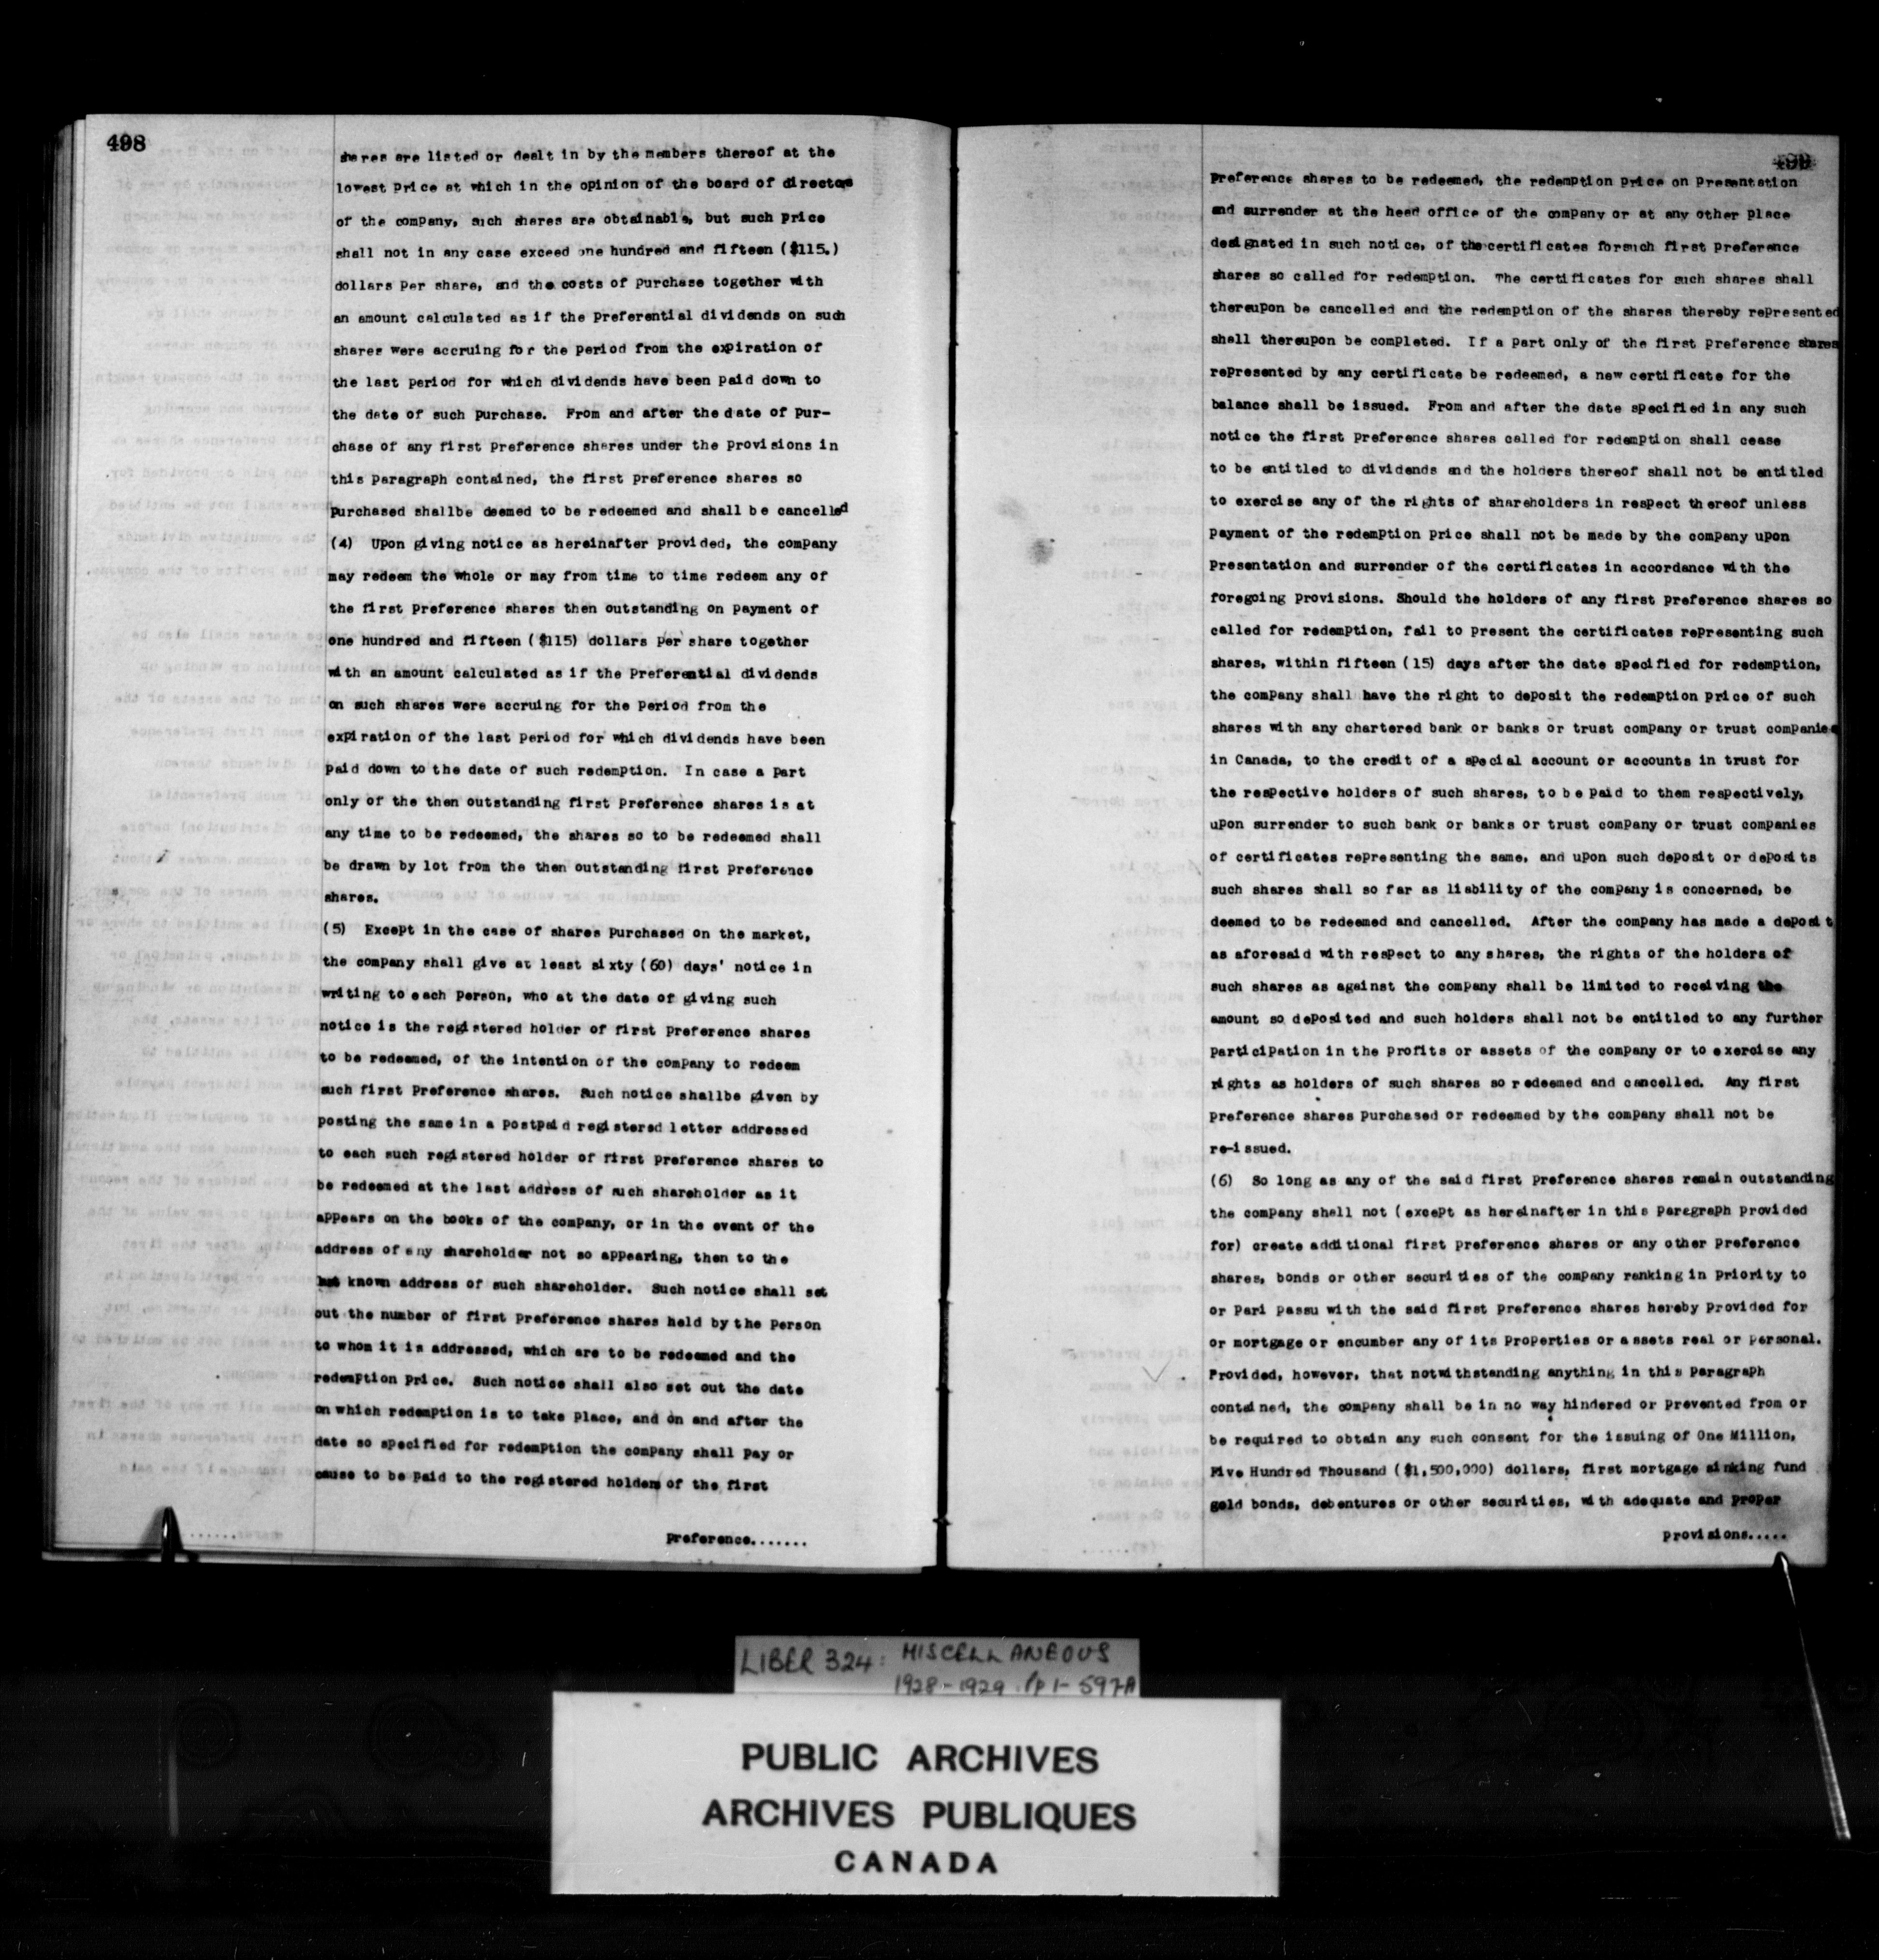 498
shares are listed or dealt in by the members thereof at the
lowest price at which in the opinion of the board of directors
of the company, such shares are obtainable, but such price
shall not in any case exceed one hundred and fifteen ($115.)
dollars per share, and the costs of purchase together with
an amount calculated as if the preferential dividends on such
shares were accruing for the period from the expiration of
the last period for which dividends have been paid down to
the date of such purchase. From and after the date of pur-
chase of any first preference shares under the provisions in
this paragraph contained, the first preference shares so
purchased shallbe deemed to be redeemed and shall be cancelled
(4) Upon giving notice as hereinafter provided, the company
may redeem the whole or may from time to time redeem any of
the first preference shares then outstanding on payment of
one hundred and fifteen ($115) dollars per share together
with an amount calculated as if the preferential dividends
on such shares were accruing for the period from the
expiration of the last period for which dividends have been
paid down to the date of such redemption. In case a part
only of the then outstanding first preference shares is at
any time to be redeemed, the shares so to be redeemed shall
be drawn by lot from the then outstanding first preference
shares.
(5) Except in the case of shares purchased on the market,
the company shall give at least sixty (60) days' notice in
writing to each person, who at the date of giving such
notice is the registered holder of first preference shares
to be redeemed, of the intention of the company to redeem
such first preference shares. Such notice shallbe given by
posting the same in a postpaid registered letter addressed
to each such registered holder of first preference shares to
be redeemed at the last address of such shareholder as it
appears on the books of the company, or in the event of the
address of any shareholder not so appearing, then to the
last known address of such shareholder. Such notice shall set
out the number of first preference shares held by the person
to whom it is addressed, which are to be redeemed and the
redemption price. Such notice shall also set out the date
on which redemption is to take place, and on and after the
date so specified for redemption the company shall pay or
cause to be paid to the registered holders of the first
preference.......
499
preference shares to be redeemed, the redemption price on presentation
and surrender at the head office of the company or at any other place
designated in such notice, of the certificates forsuch first preference
shares so called for redemption. The certificates for such shares shall
thereupon be cancelled and the redemption of the shares thereby represented
shall thereupon be completed. If a part only of the first preference shares
represented by any certificate be redeemed, a new certificate for the
balance shall be issued. From and after the date specified in any such
notice the first preference shares called for redemption shall cease
to be entitled to dividends and the holders thereof shall not be entitled
to exercise any of the rights of shareholders in respect thereof unless
payment of the redemption price shall not be made by the company upon
presentation and surrender of the certificates in accordance with the
foregoing provisions. Should the holders of any first preference shares so
called for redemption, fail to present the certificates representing such
shares, within fifteen (15) days after the date specified for redemption,
the company shall have the right to deposit the redemption price of such
shares with any chartered bank or banks or trust company or trust companies
in Canada, to the credit of a special account or accounts in trust for
the respective holders of such shares, to be paid to them respectively,
upon surrender to such bank or banks or trust company or trust companies
of certificates representing the same, and upon such deposit or deposits
such shares shall so far as liability of the company is concerned, be
deemed to be redeemed and cancelled. After the company has made a deposit
as aforesaid with respect to any shares, the rights of the holders of
such shares as against the company shall be limited to receiving the
amount so deposited and such holders shall not be entitled to any further
participation in the profits or assets of the company or to exercise any
rights as holders of such shares so redeemed and cancelled. Any first
preference shares purchased or redeemed by the company shall not be
re-issued.
(6) So long as any of the said first preference shares remain outstanding
the company shall not (except as hereinafter in this paragraph provided
for) create additional first preference shares or any other preference
shares, bonds or other securities of the company ranking in priority to
or pari passu with the said first preference shares hereby provided for
or mortgage or encumber any of its properties or assets real or personal.
Provided, however, that notwithstanding anything in this paragraph
contained, the company shall be in no way hindered or prevented from or
be required to obtain any such consent for the issuing of One Million,
Five Hundred Thousand ($1,500,000) dollars, first mortgage sinking fund
gold bonds, debentures or other securities, with adequate and proper
provisions.....
LIBER 324: MISCELLANEOUS
1928-1929. Pp 1-597A
PUBLIC ARCHIVES
ARCHIVES PUBLIQUES
CANADA